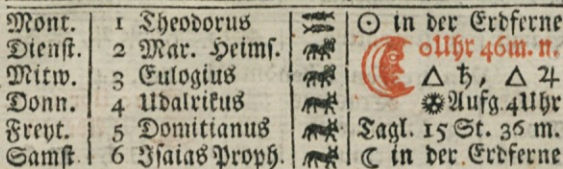 Mont. 1 Theodorus ☉ in der Erdferne
Dienst. 2 Mar. Heims. 0Uhr 46m. n.
Mitw. 3 Eulogius △ ♄, △ ♃
Donn. 4 Udalrikus Aufg. 4Uhr
Freyt. 5 Domitianus Tagl. 15 St. 36 m.
Samst. 6 Isaias Proph. ☾ in der Erdferne